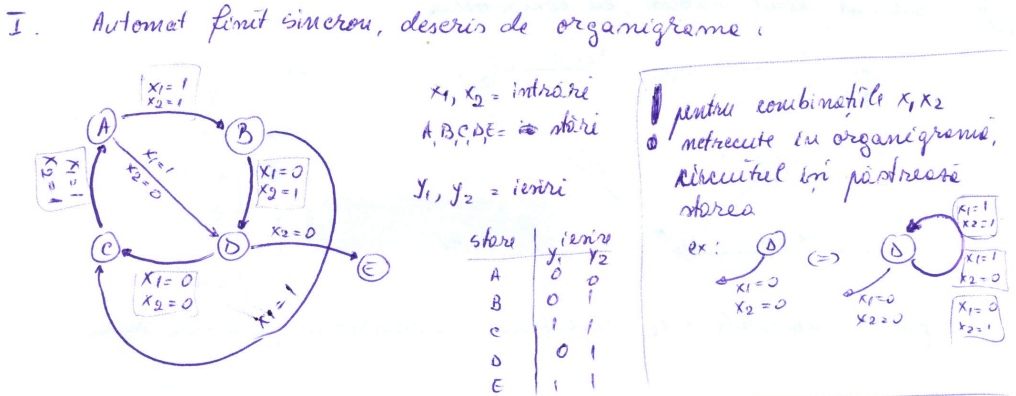 I. Automat finit sincron, descris de organigrama.
x1=1
x2=1
A
B
x1=1
x2=1
x1=1
x2=0
x1=0
x2=1
C
D
x2=0
E
x1=0
x2=0
x1=1
x1, x2 = intrări
A,B,C,D,E= stări
y1, y2 = ieșiri
stare ieșire
y1 y2
A 0 0
B 0 1
C 1 1
D 0 1
E 1 1
! pentru combinațiile x1 x2
netrecute în organigramă,
circuitul își păstrează
starea
ex: D (=) D
x1=0
x2=0
x1=0
x2=0
x1=1
x2=1
x1=1
x2=0
x1=0
x2=1